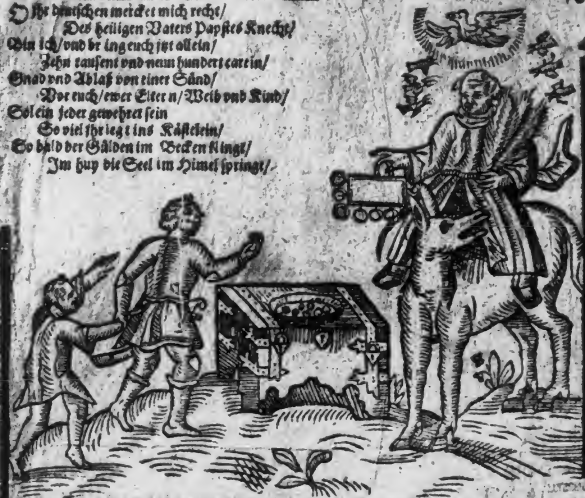 O ihr deutschen mercket mich recht/
Des heiligen Vaters Papstes Knecht/
Bin ich/ vnd br ing euch jtzt allein/
Zehn tausent vnd neun hundert carein/
Gnad vnd Ablaß von einer Sünd/
Vor euch/ ewer Elter n/ Weib vnd Kind/
Sol ein jeder gewehret sein
So viel jhr legt ins Kästelein/
So bald der Gülden im Becken klingt/
Im huy die Seel im Himel springt/